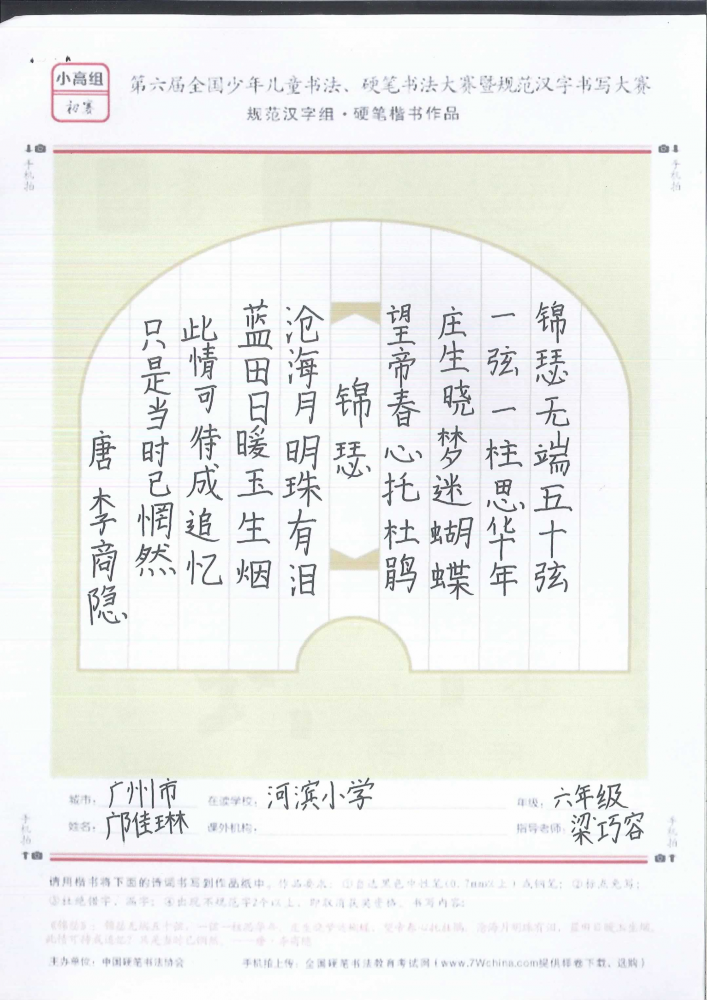 小高组
初赛
第六届全国少年儿童书法、硬笔书法大赛暨规范汉字书写大赛
规范汉字组·硬笔楷书作品
手机拍
手机拍
锦瑟无端五十弦
一弦一柱思华年
庄生晓梦迷蝴蝶
望帝春心托杜鹃
锦瑟
沧海月明珠有泪
蓝田日暖玉生烟
此情可待成追忆
只是当时已惘然
唐 李商隐
城市: 广州市 在读学校: 河滨小学 年级: 六年级
姓名: 邝佳琳 课外机构: 指导老师: 梁巧容
手机拍
手机拍
请用楷书将下面的诗词书写到作品纸中。作品要求:①自选黑色中性笔(0.7mm以上)或钢笔;②标点免写;
③杜绝错字、漏字;④出现不规范字2个以上,即取消获奖资格。书写内容:
《锦瑟》:锦瑟无端五十弦,一弦一柱思华年。庄生晓梦迷蝴蝶,望帝春心托杜鹃。沧海月明珠有泪,蓝田日暖玉生烟。
此情可待成追忆?只是当时已惘然。——唐·李商隐
主办单位:中国硬笔书法协会 手机拍上传:全国硬笔书法教育考试网(www.7Wchina.com提供师卷下载、选购)